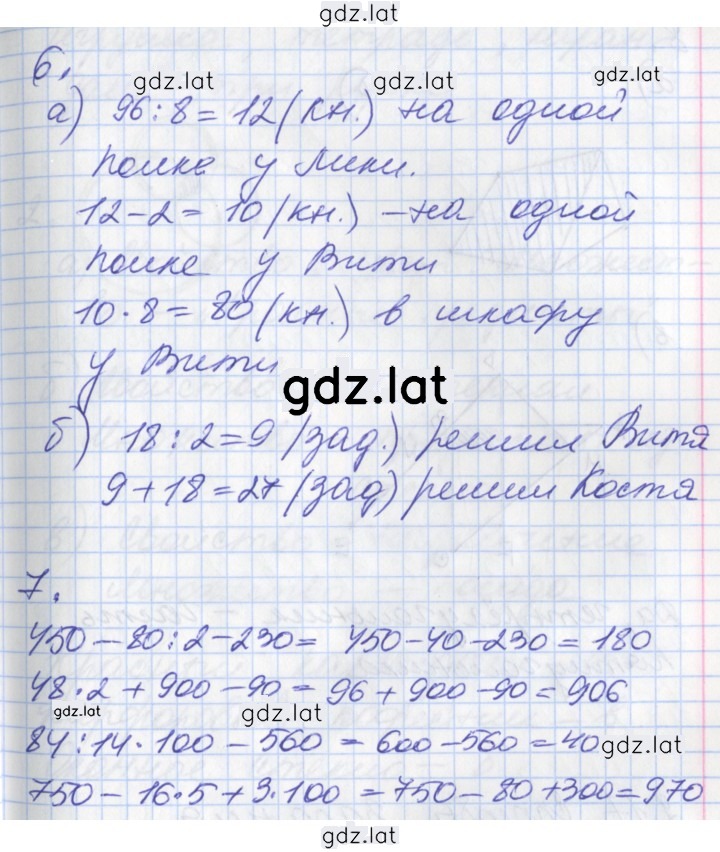 gdz.lat
6.
gdz.lat gdz.lat gdz.lat
а) 96:8=12(кн.) на одной
полке у Лики.
12-2=10(кн.) - на одной
полке у Вити
10·8=80(кн.) в шкафу
у Вити
gdz.lat
б) 18:2=9(зад.) решил Витя
9+18=27(зад) решил Костя
7.
450-80:2-230= 450-40-230=180
48·2+900-90=96+900-90=906
gdz.lat gdz.lat
84:14·100-560=600-560=40
gdz.lat
750-16·5+3·100=750-80+300=970
gdz.lat